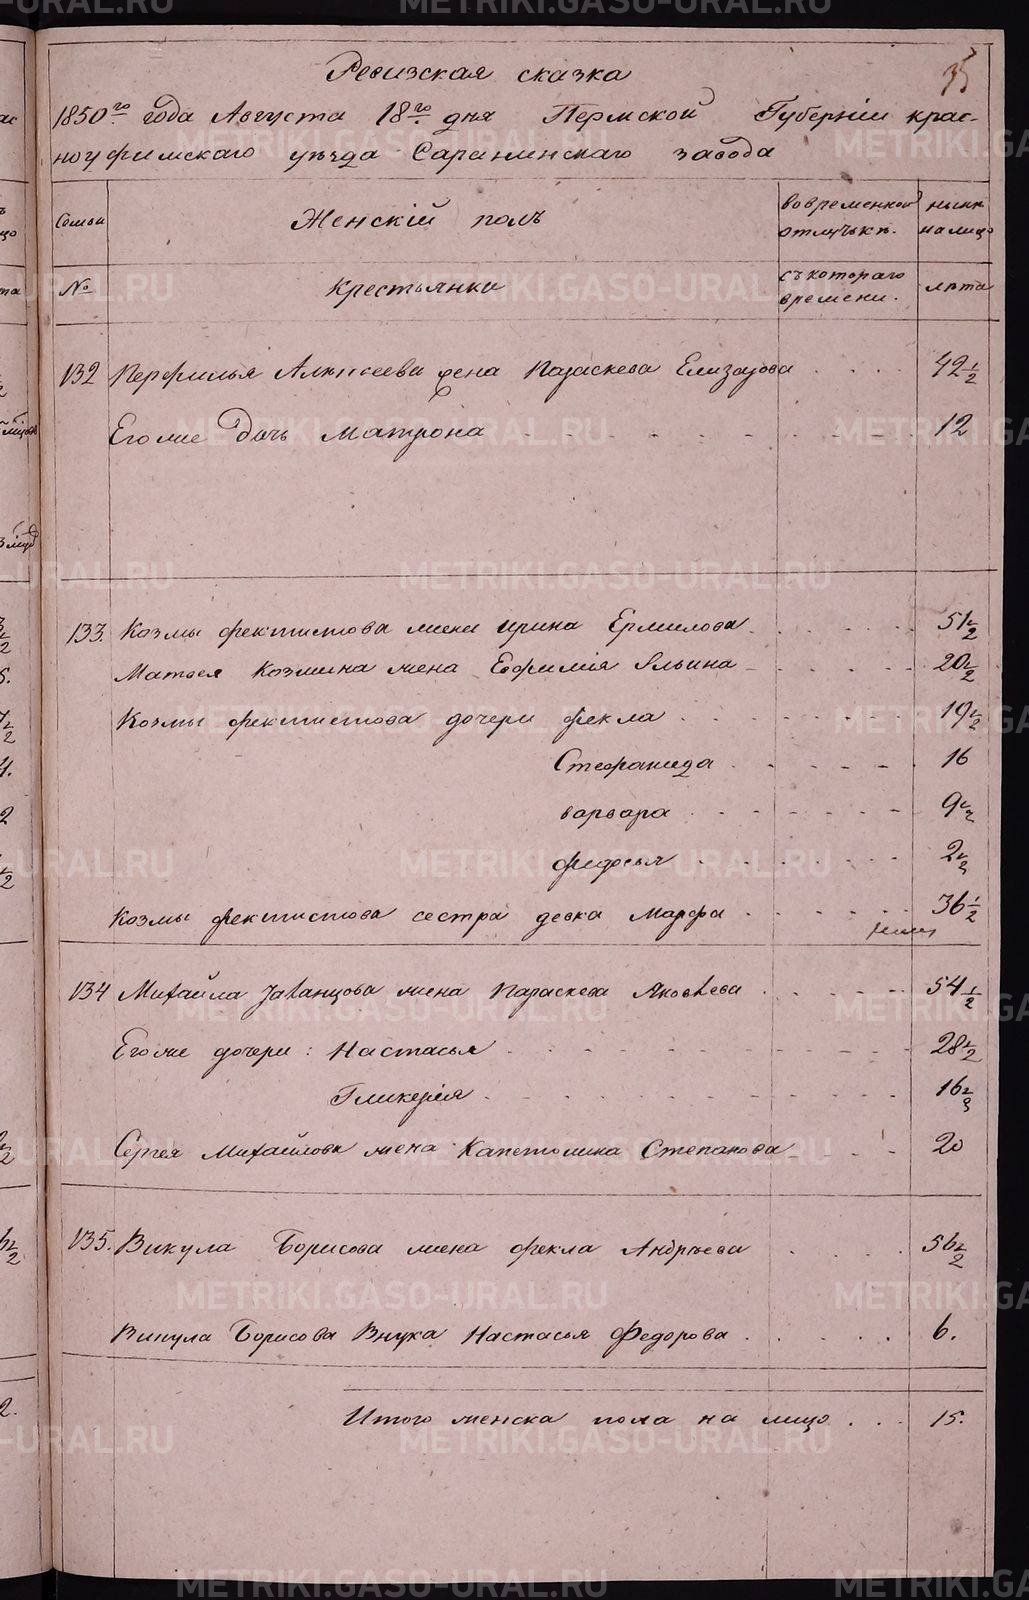 35
Ревизская сказка
1850го года Августа 18го дня Пермской Губерніи крас-
ноуфимскаго уѣзда Саранинскаго завода
Семьи
Женскій полъ
во временной
отлучькѣ.
нынѣ
на лицо
№
Крестьянки
съ котораго
времени.
лѣта
132 Перфилья Алексеева жена Параскева Елизарова . . . . 42 1/2
Его же Дочь Матрона . . . . 12
133. Козмы феклистова жена ирина Ермилова . . . . 51 1/2
Матвея Козмина жена Евфимія Ильина . . . . 20 1/2
Козмы феклистова дочери фекла . . . . 19 1/2
Стефанида . . . . 16
варвара . . . . 9 1/2
федосья . . . . 2 1/2
Козмы феклистова сестра девка Марфа . . . . 36 1/2
134 Михайла жена Параскева Яковлева . . . . 54 1/2
Его же дочери: Настасья . . . . 28 1/2
Гликерія . . . . 16 1/2
Сергея Михайлова жена Капетолина Степанова . . . . 20
135. Викула Борисова жена фекла Андрѣева . . . . 56 1/2
Викула Борисова Внука Настасья Федорова . . . . 6.
Итого женска пола на лицо . . . 15.
METRIKI.GASO-URAL.RU